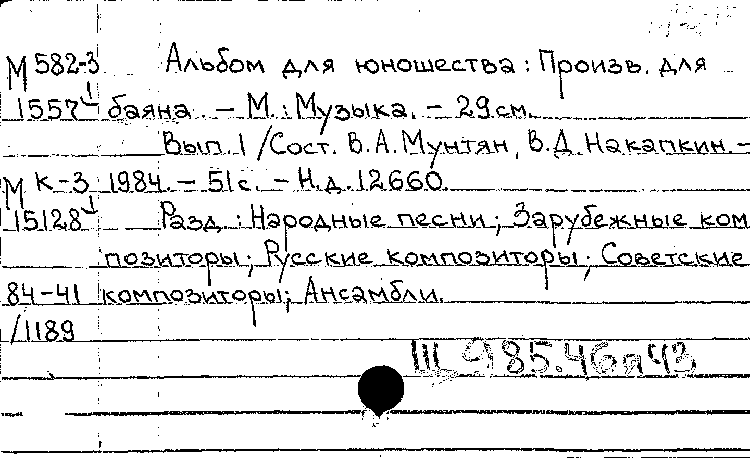 М 582-3 Альбом для юношества : Произв. для
1557 баяна. – М. : Музыка. – 29 см.
Вып. 1 / Сост. В.А. Мунтян, В.Д. Накапкин. –
М К-3 1984. – 51 с. – Н.д. 12660.
15128 Разд.: Народные песни; Зарубежные ком
позиторы; Русские композиторы; Советские
84-41 композиторы; Ансамбли.
/1189
Щ 985.46я43